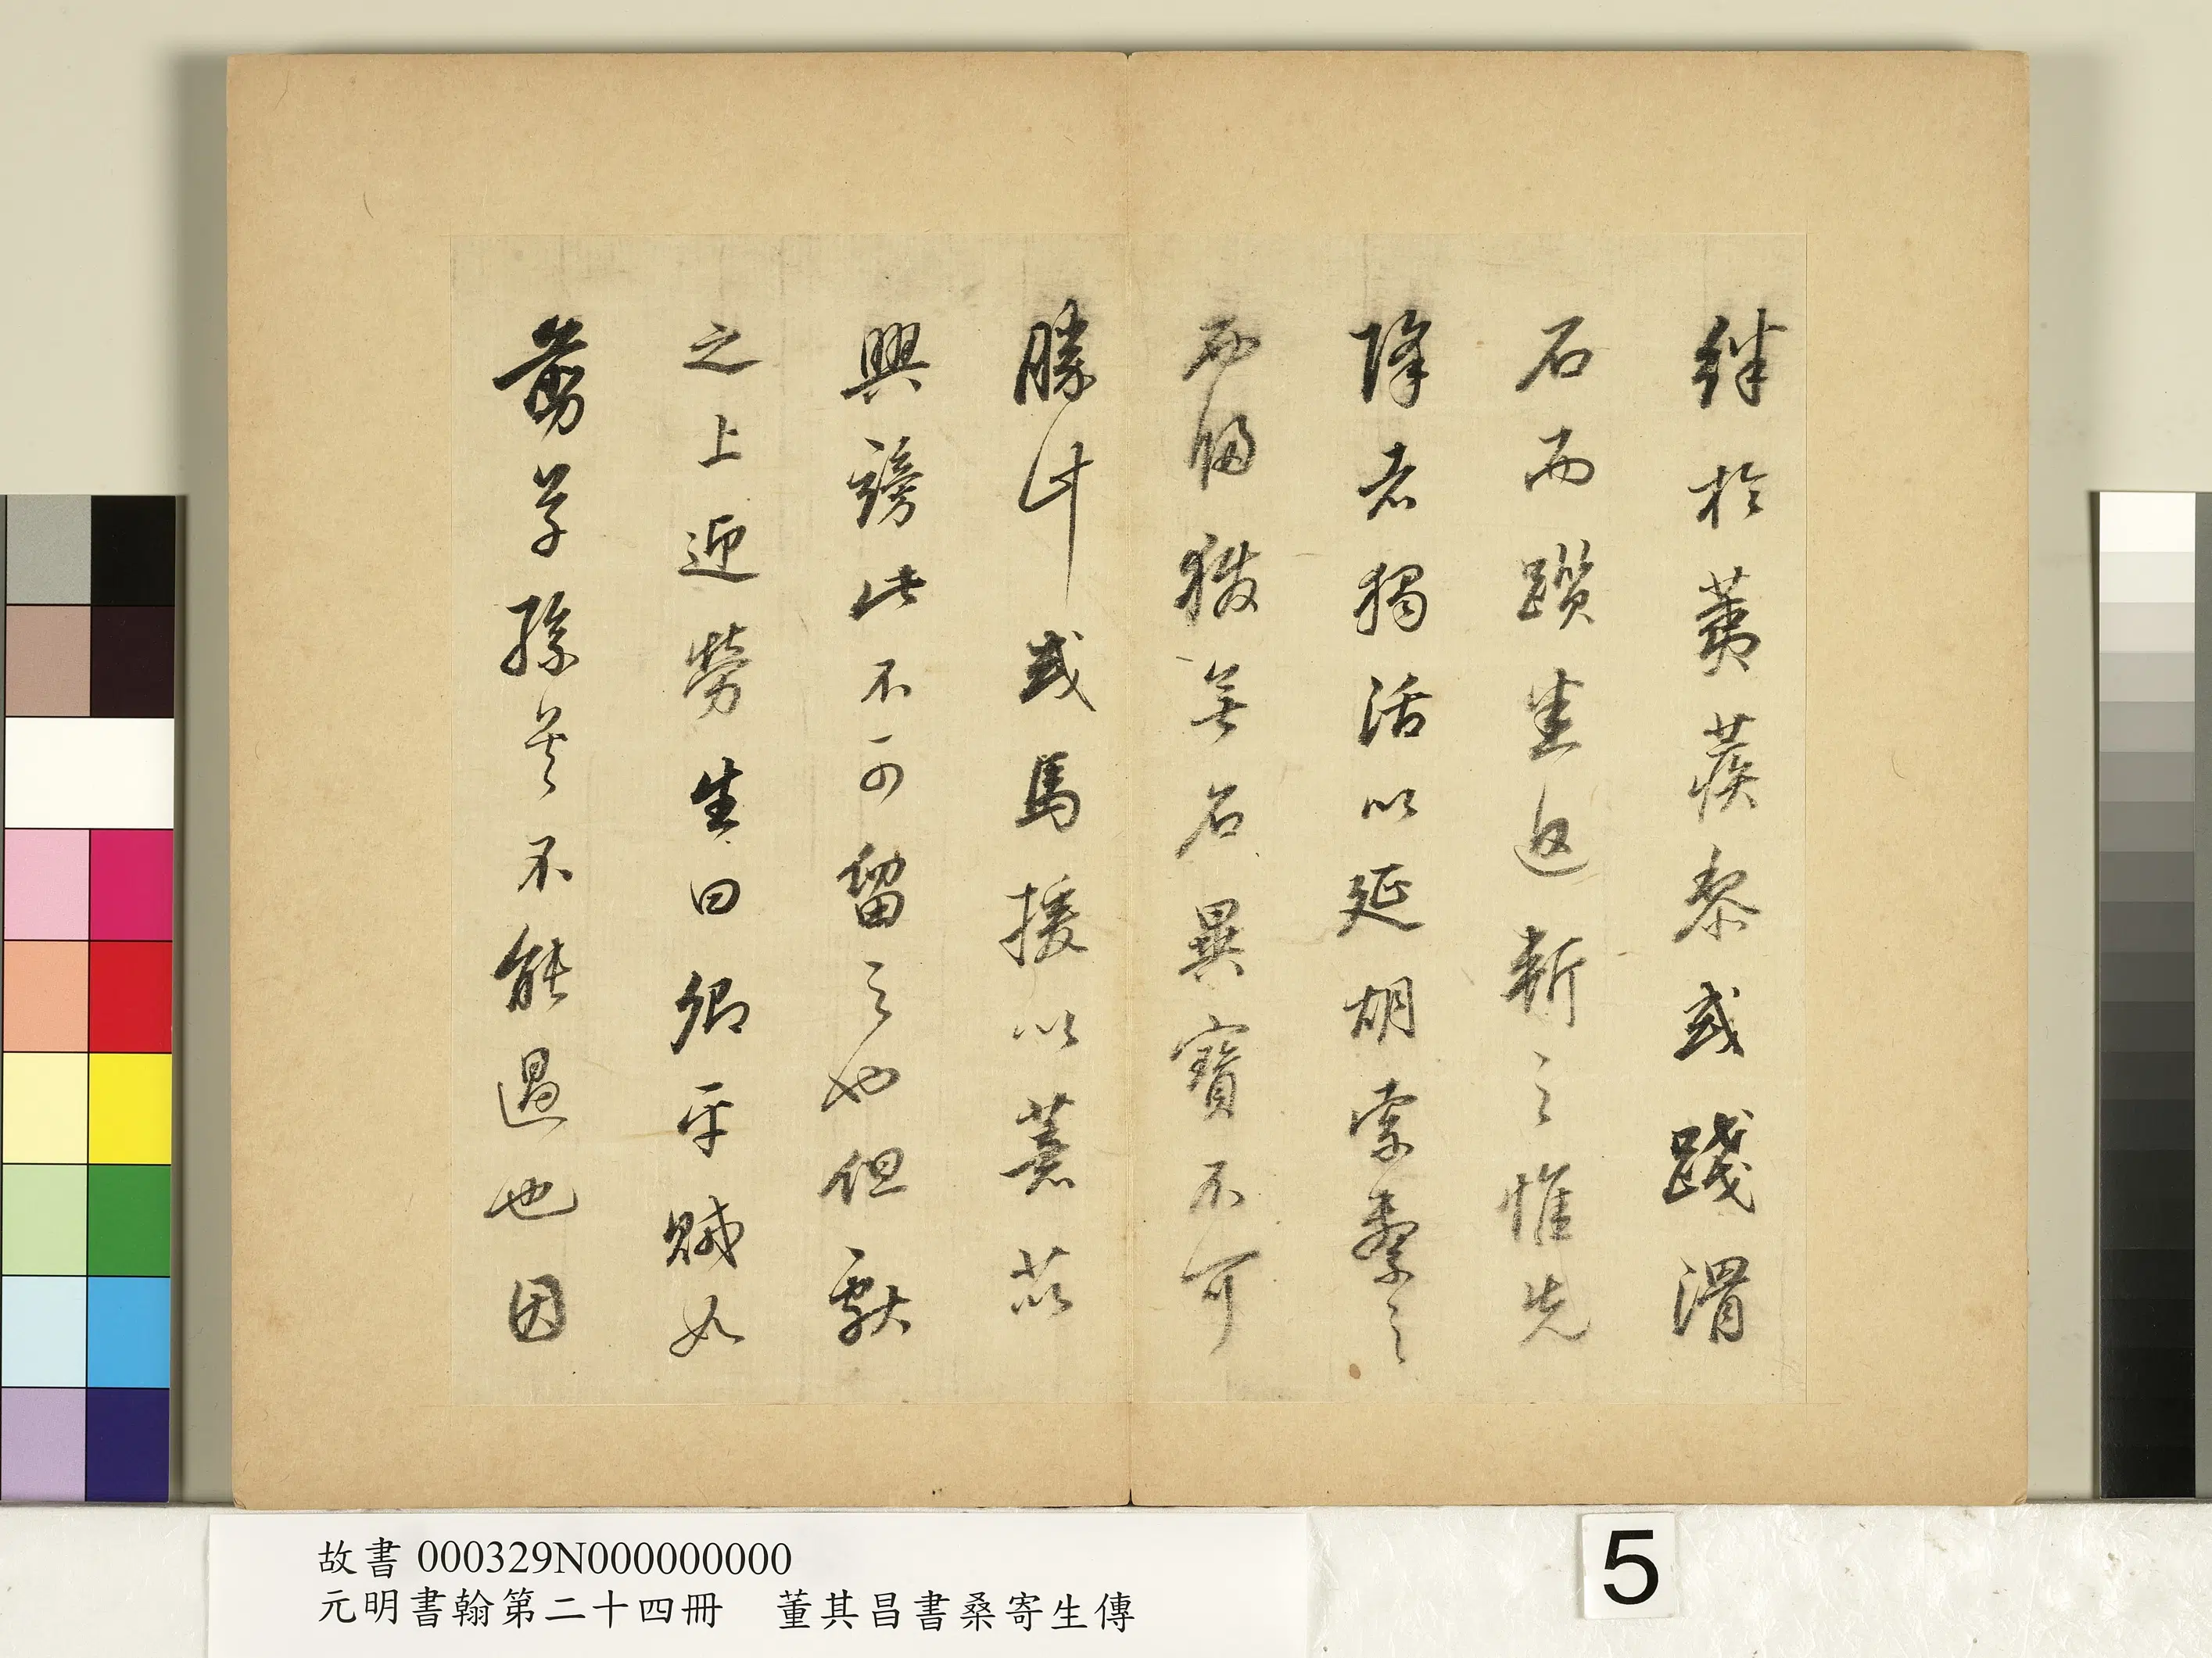 絆於蒺蔾或踐滑
石而躓悉追斬之惟先
降者獨活以延胡索繫之
而歸獲無名異寶不可
勝計或馬援以薏苡
興謗此不可留之也但獻
之上迎勞生曰卿平賊如
剪草孫吳不能過也因
故書 000329N000000000
元明書翰第二十四冊 董其昌書桑寄生傳
5